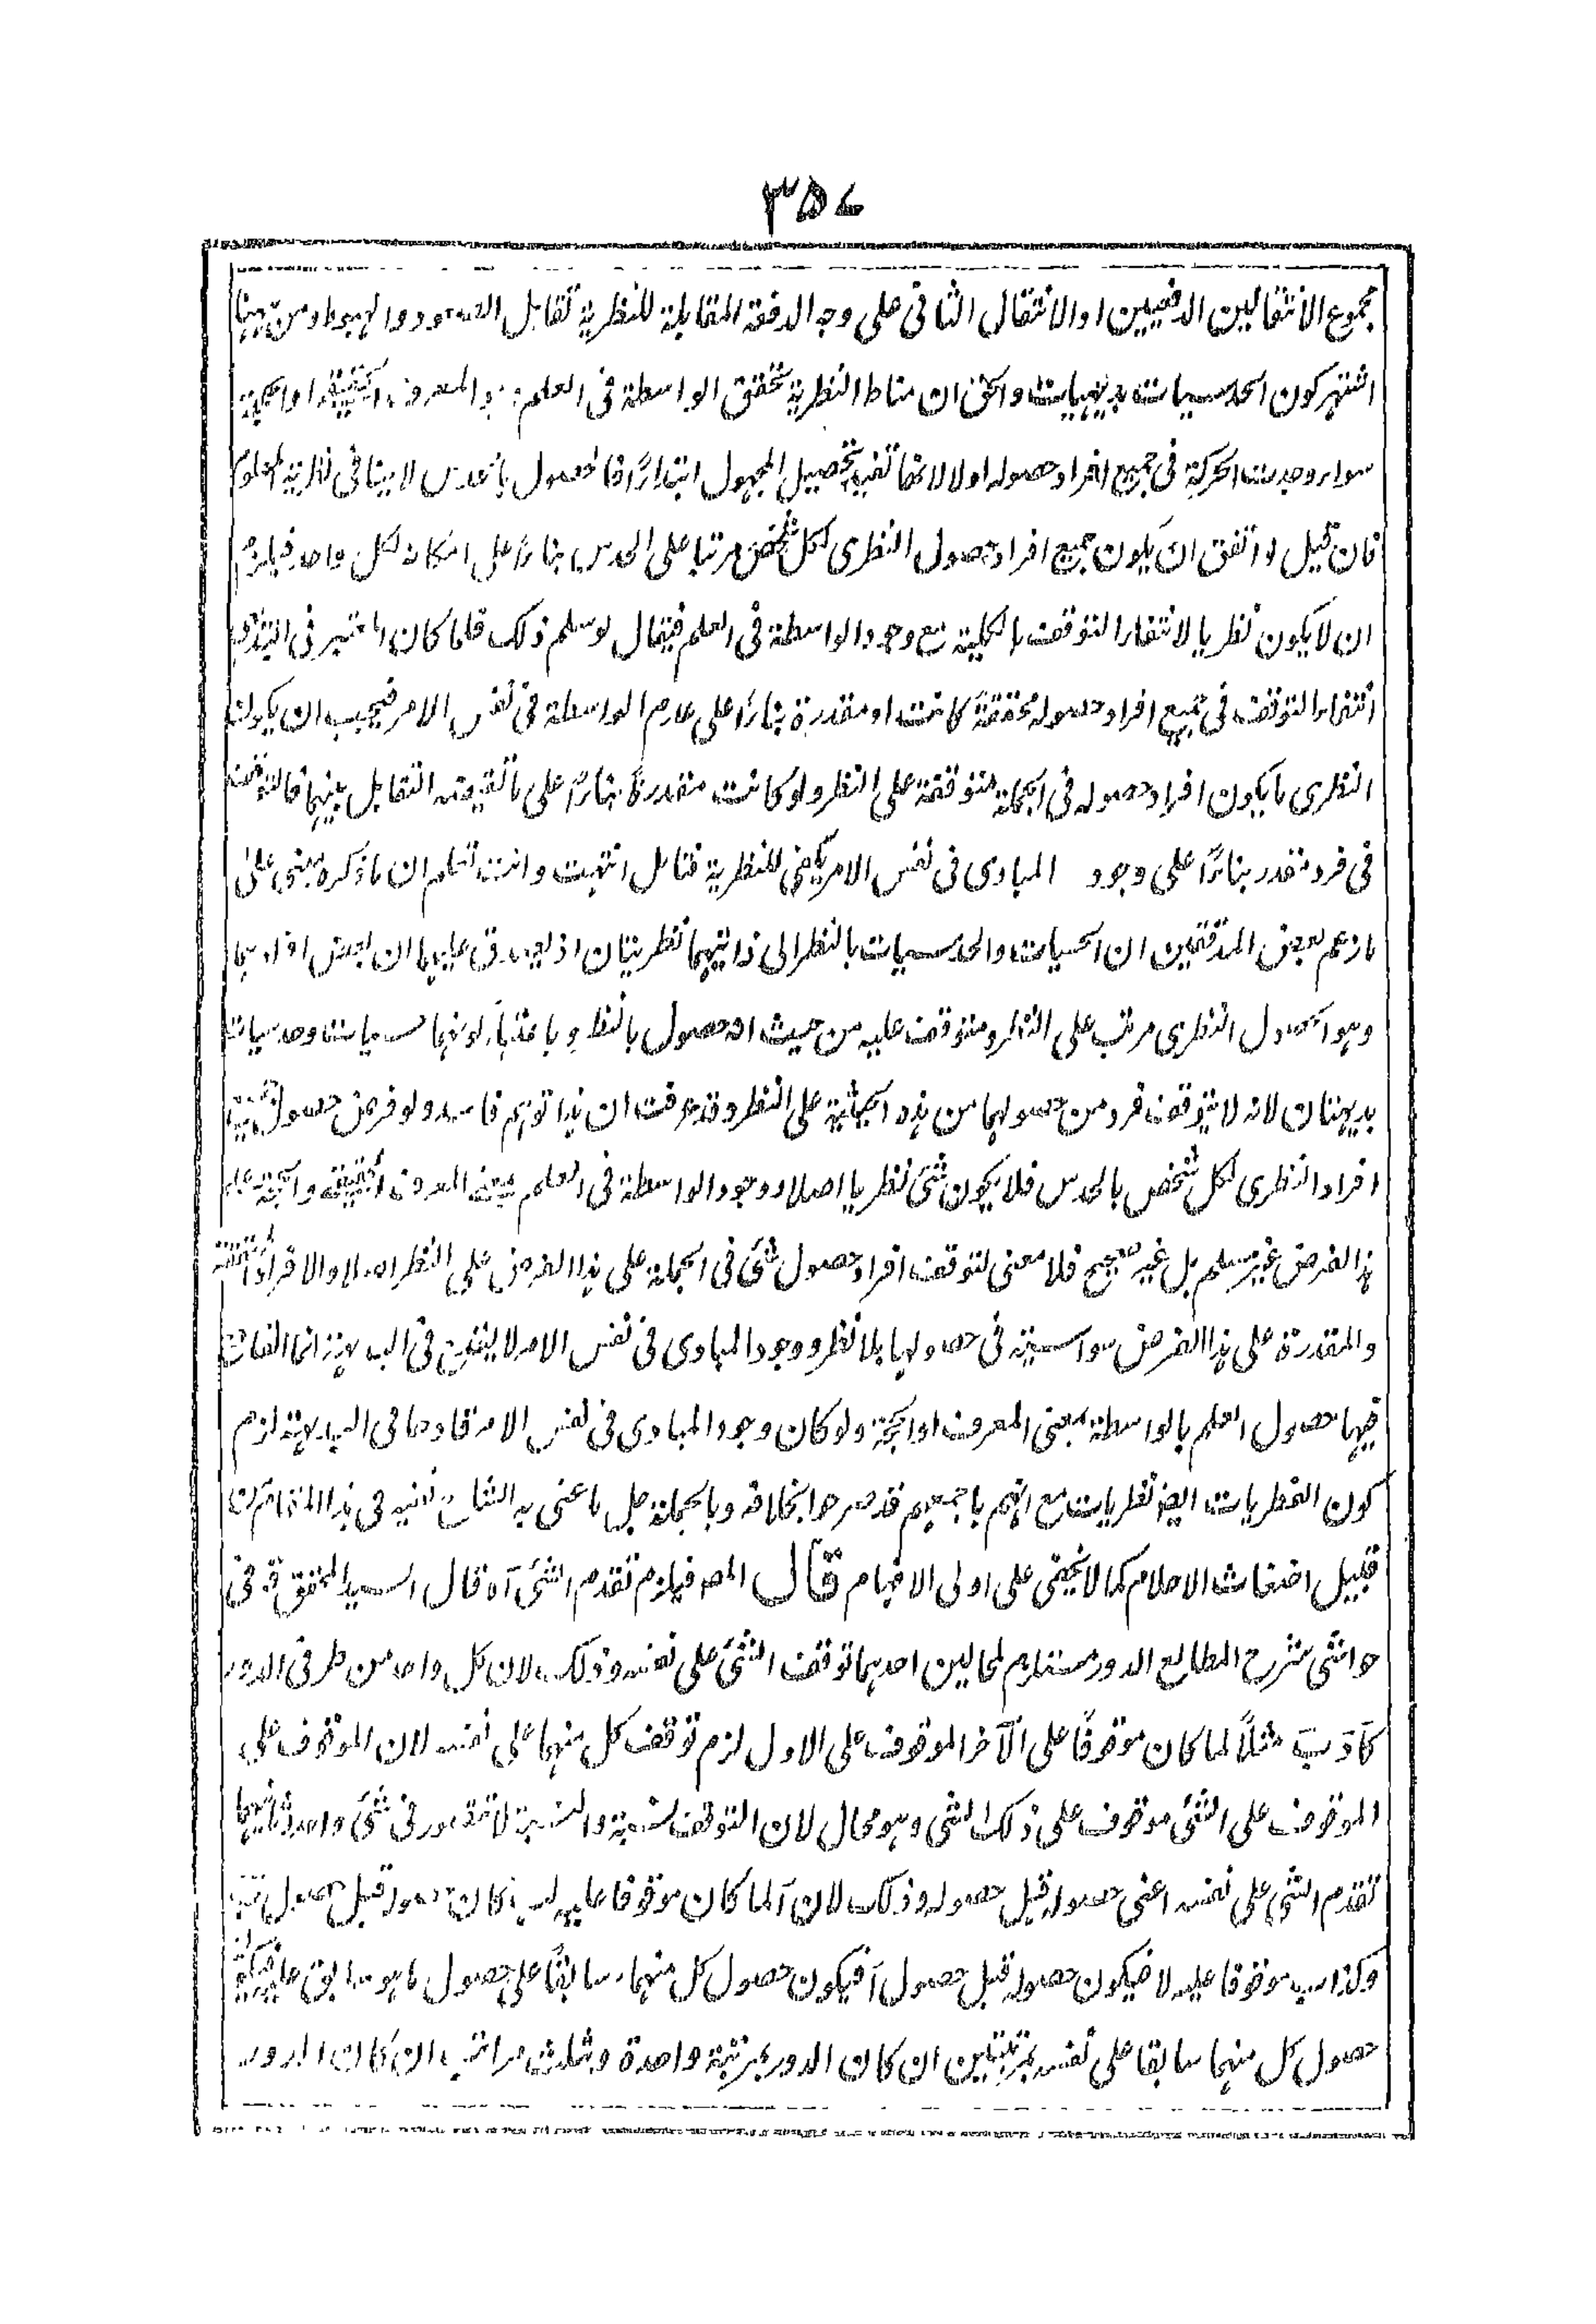 ٣٥٧
مجموع الانتقالين الدفعيين او الانتقال الثانى على وجه الدفعة المقابلة للنظرية تقابل الصعود والهبوط ومن ههنا
اشتهر كون الحدسيات بديهيات والحق ان مناط النظرية تحقق الواسطة فى العلم المعرف الحقيقة او الحجة
سواء وجدت الحركة فى جميع افراد حصوله اولا لانها تفيد تحصيل المجهول ابتداءً فالحصول بالحدس لا ينافى نظرية
فان قيل لو اتفق ان يكون جميع افراد حصول النظرى لكل شخص مرتبا على الحدس بناءً على امكانه لكل واحد فيلزم
ان لا يكون نظريا لانتفاء التوقف بالكلية مع وجود الواسطة فى العلم فيقال لو سلم ذلك فلما كان المعتبر فى
انتفاء التوقف فى جميع افراد حصوله محققة كانت او مقدرة بناءً على عدم الواسطة فى نفس الامر فيجب ان يكون
النظرى ما يكون افراد حصوله فى الجملة متوقفة على النظر ولو كانت مقدرة بناءً على ما تقتضيه التقابل بينهما فالتوقف
فى فرد مقدر بناءً على وجود المبادى فى نفس الامر يكفى للنظرية فتامل انتهت وانت تعلم ان ما ذكره مبنى على
ما زعم بعض المدققين ان الحسيات والحدسيات بالنظر الى ذاتيهما نظريتان اذ يصدق عليهما ان بعض افرادهما
وهو الحصول النظرى مرتب على النظر ومتوقف عليه من حيث انه حصول بالنظر وباعتبار كونهما حسيات وحدسيات
بديهتان لانه لا يتوقف فرد من حصولهما من هذه الحيثية على النظر وقد عرفت ان هذا توهم فاسد ولو فرض حصول جميع
افراد النظرى لكل شخص بالحدس فلا يكون شئ نظريا اصلا ووجود الواسطة فى العلم بمعنى المعرف الحقيقة والحجة على
هذا الفرض غير مسلم بل غير صحيح فلا معنى لتوقف افراد حصول شئ فى الجملة على هذا الفرض على النظر اصلا والافراد المحققة
والمقدرة على هذا الفرض سواسية فى حصولها بلا نظر ووجود المبادى فى نفس الامر لا يقدح فى البديهة انما القادح
فيها حصول العلم بالواسطة بمعنى المعرف او الحجة ولو كان وجود المبادى فى نفس الامر قادحا فى البديهة لزم
كون الفطريات ايضا نظريات مع انهم باجمعهم قد صرحوا بخلافه وبالجملة جل ما عنى به الشارح نفسه فى هذا المقام من
قبيل اضغاث الاحلام كما لا يخفى على اولى الافهام قال المصـ فيلزم تقدم الشئ آه قال السيد المحقق قـ فى
حواشى شرح المطالع الدور مستلزم لمحالين احدهما توقف الشئ على نفسه وذلك لان كل واحد من طرفى الدور
كآ وَ بَ مثلاً لما كان موقوفاً على الآخر الموقوف على الاول لزم توقف كل منهما على نفسه لان الموقوف على
الموقوف على الشئ موقوف على ذلك الشئ وهو محال لان التوقف نسبة والنسبة لا تتصور فى شئ واحد وثانيهما
تقدم الشئ على نفسه اعنى حصوله قبل حصوله وذلك لان آ لما كان موقوفا عليه لب كان حصوله قبل حصول ب
وكذا ب موقوفا عليه لا فيكون حصوله قبل حصول آ فيكون حصول كل منهما سابقاً على حصول ما هو سابق على
حصول كل منهما سابقا على نفسه بمرتبتين ان كان الدور بمرتبة واحدة وبثلث مراتب ان كان الدور